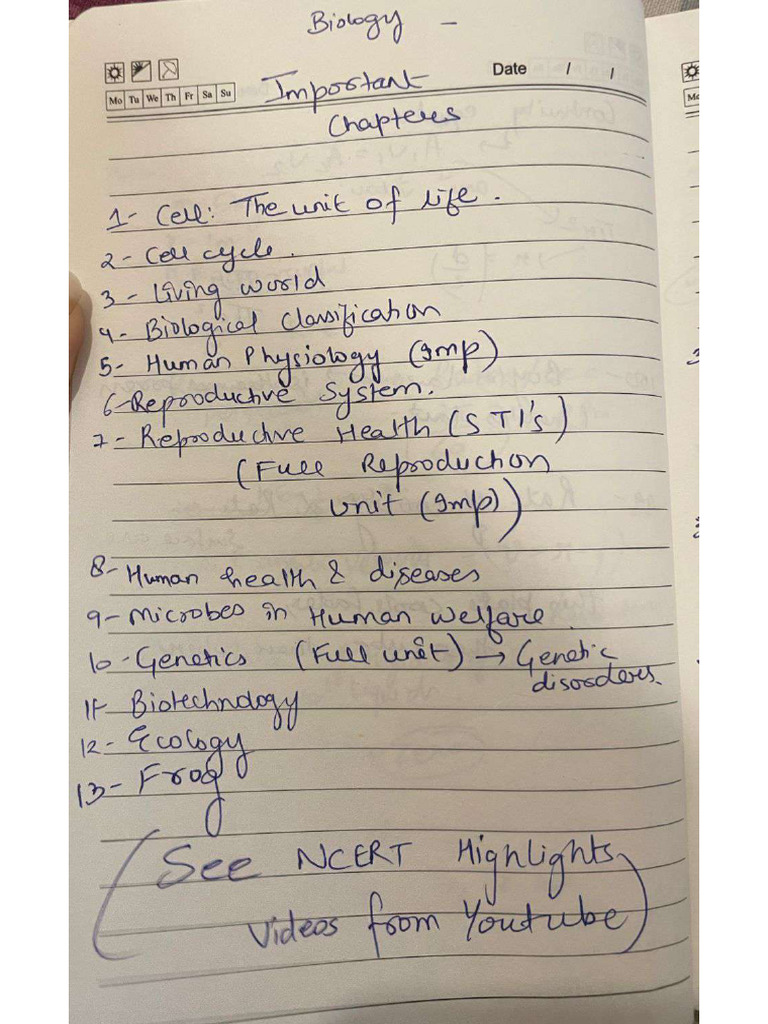 Biology -
Date / /
Mo Tu We Th Fr Sa Su
Important
Chapters
1- Cell: The unit of life.
2- Cell cycle.
3- Living world
4- Biological Classification
5- Human Physiology (Imp)
6- Reproductive System.
7- Reproductive Health (STI's)
(Full Reproduction
unit (Imp))
8- Human health & diseases
9- Microbes in Human Welfare.
10- Genetics (Full unit) → Genetic
disorders.
11- Biotechnology
12- Ecology
13- Frog
(See NCERT Highlights
Videos from Youtube)